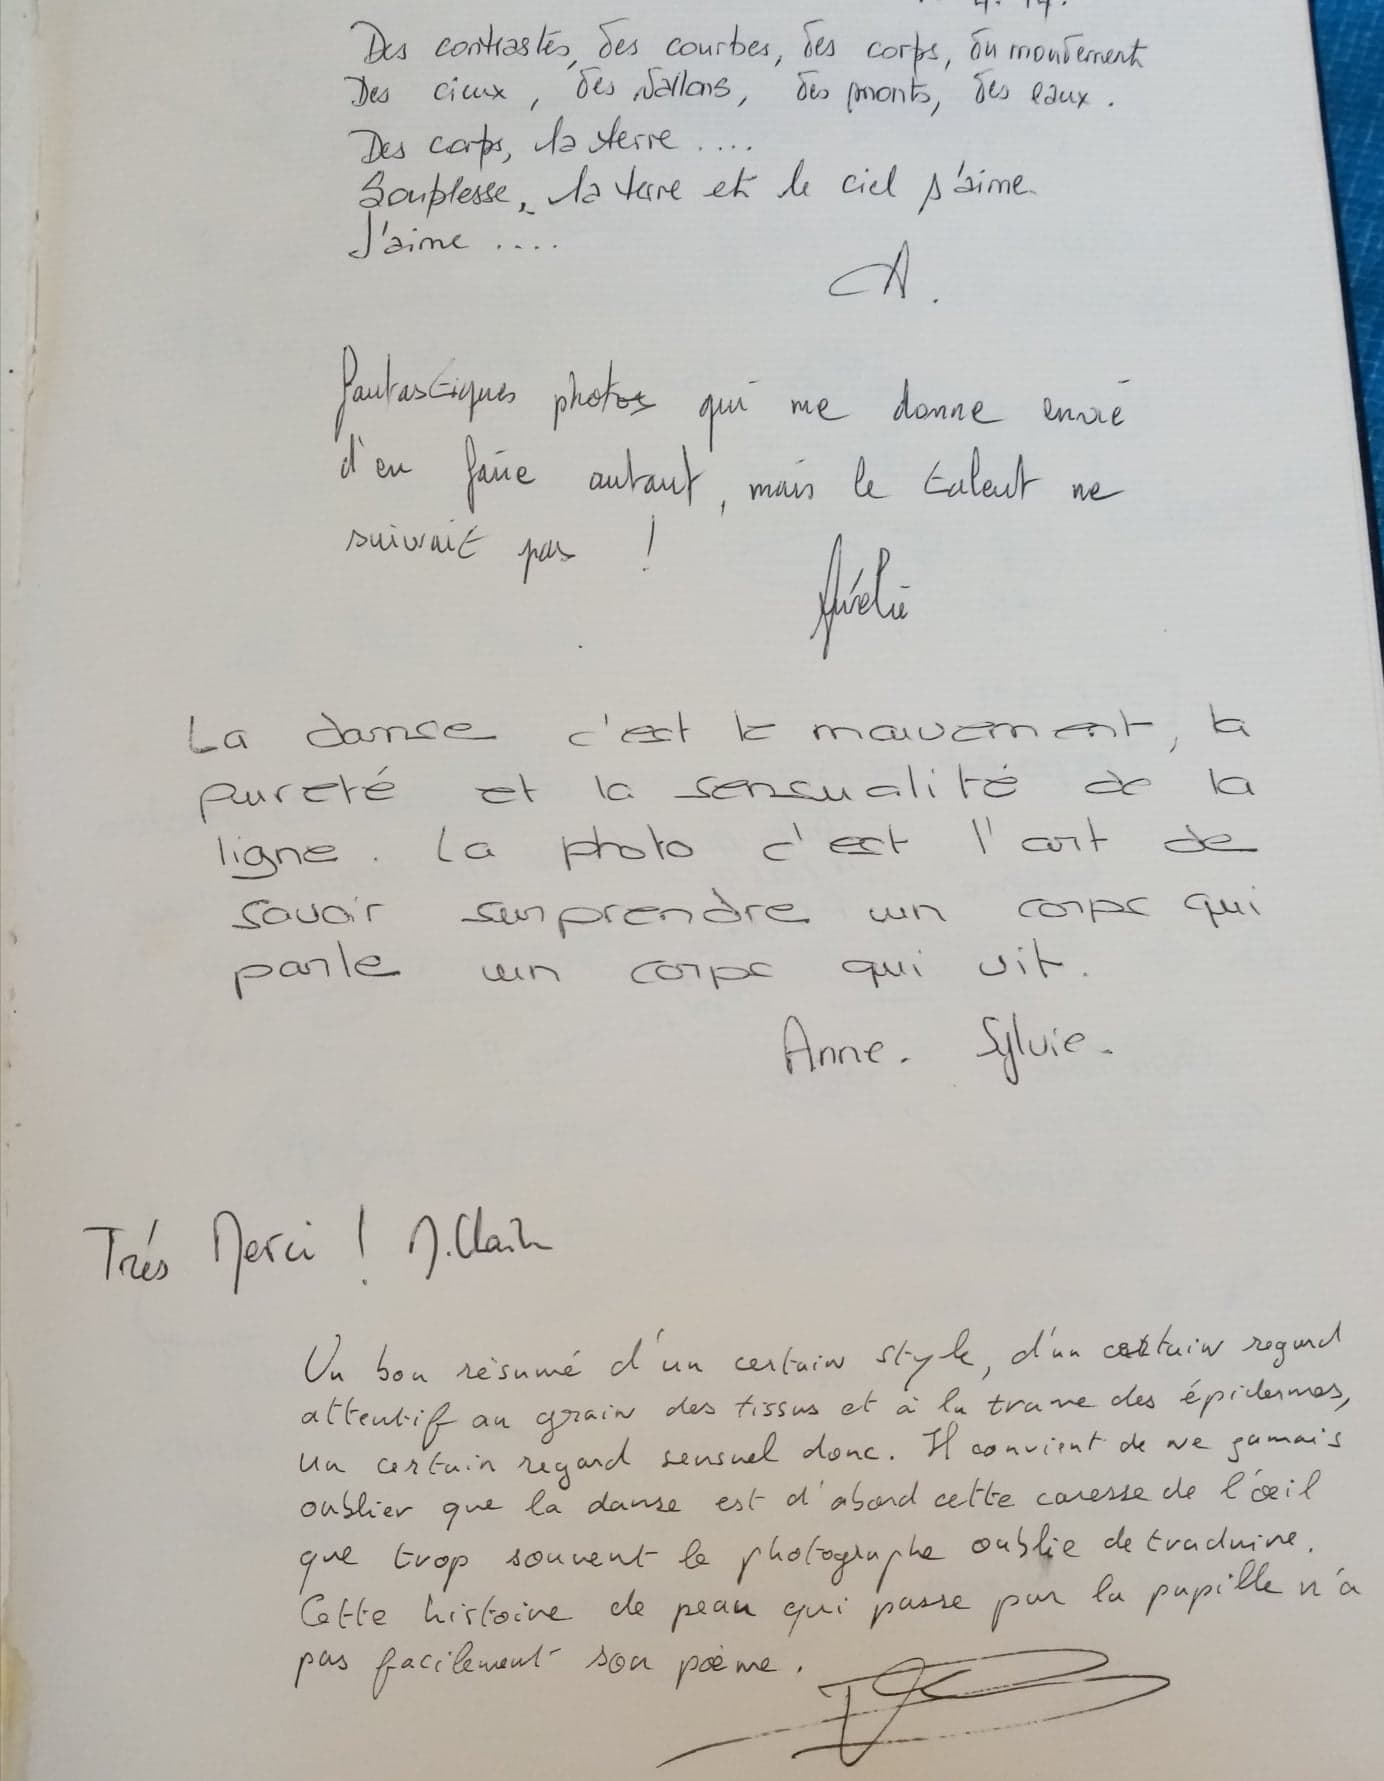 Des contrastes, des courbes, des corps, du mouvement
Des cieux, des vallons, des monts, des eaux.
Des corps, la terre ....
Souplesse, la terre et le ciel s'aime.
J'aime ....
A.
fantastiques photos qui me donne envie
d'en faire autant, mais le talent ne
suivrait pas !
Aurélie
La danse c'est le mouvement, la
pureté et la sensualité de la
ligne. La photo c'est l'art de
savoir surprendre un corps qui
parle un corps qui vit.
Anne. Sylvie.
Trés Merci !
Un bon résumé d'un certain style, d'un certain regard
attentif au grain des tissus et à la trame des épidermes,
un certain regard sensuel donc. Il convient de ne jamais
oublier que la danse est d'abord cette caresse de l'œil
que trop souvent le photographe oublie de traduire.
Cette histoire de peau qui passe par la pupille n'a
pas facilement son poème.